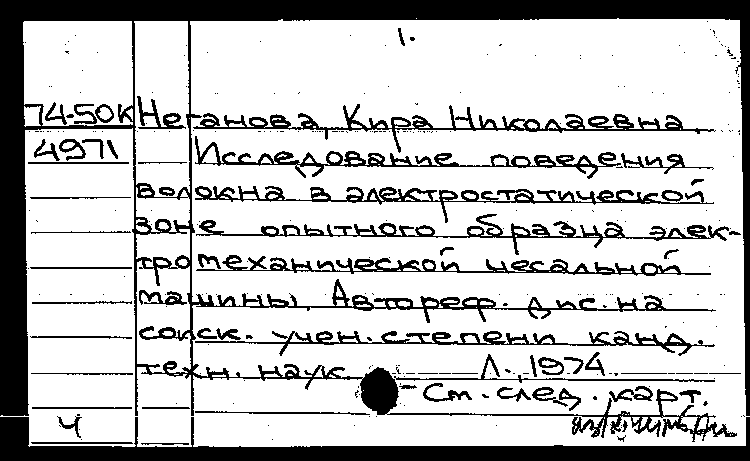 1.
74-50К Неганова, Кира Николаевна.
4971 Исследование поведения
волокна в электростатической
зоне опытного образца элек-
тромеханической чесальной
машины. Автореф. дис. на
соиск. учен. степени канд.
техн. наук. Л., 1974.
См. след. карт.
ч